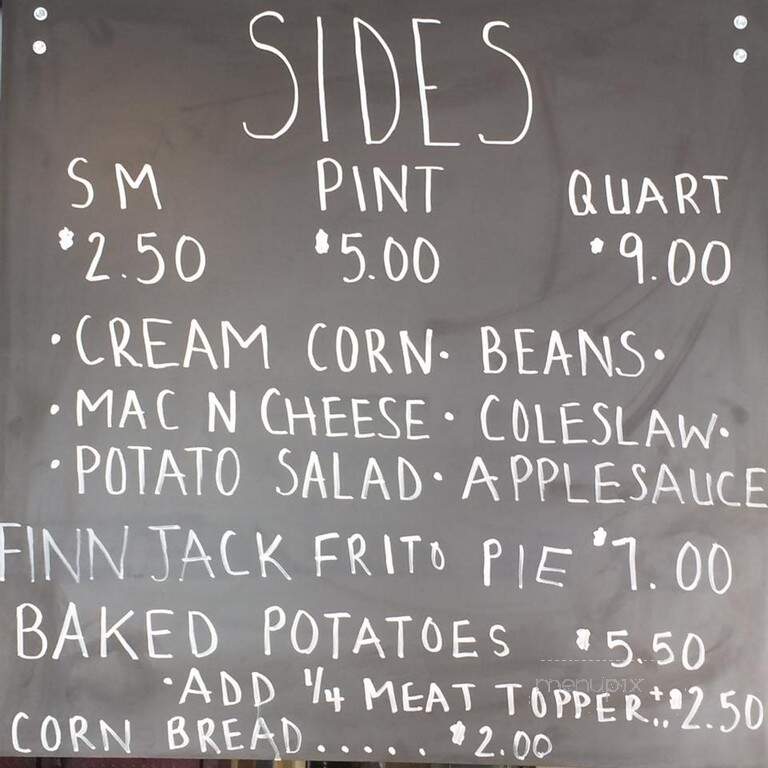 SIDES
SM PINT QUART
$2.50 $5.00 $9.00
·CREAM CORN· BEANS·
·MAC N CHEESE· COLESLAW·
·POTATO SALAD· APPLESAUCE
FINN JACK FRITO PIE $7.00
BAKED POTATOES $5.50
menupix
·ADD 1/4 MEAT TOPPER+..$2.50
CORN BREAD...... $2.00